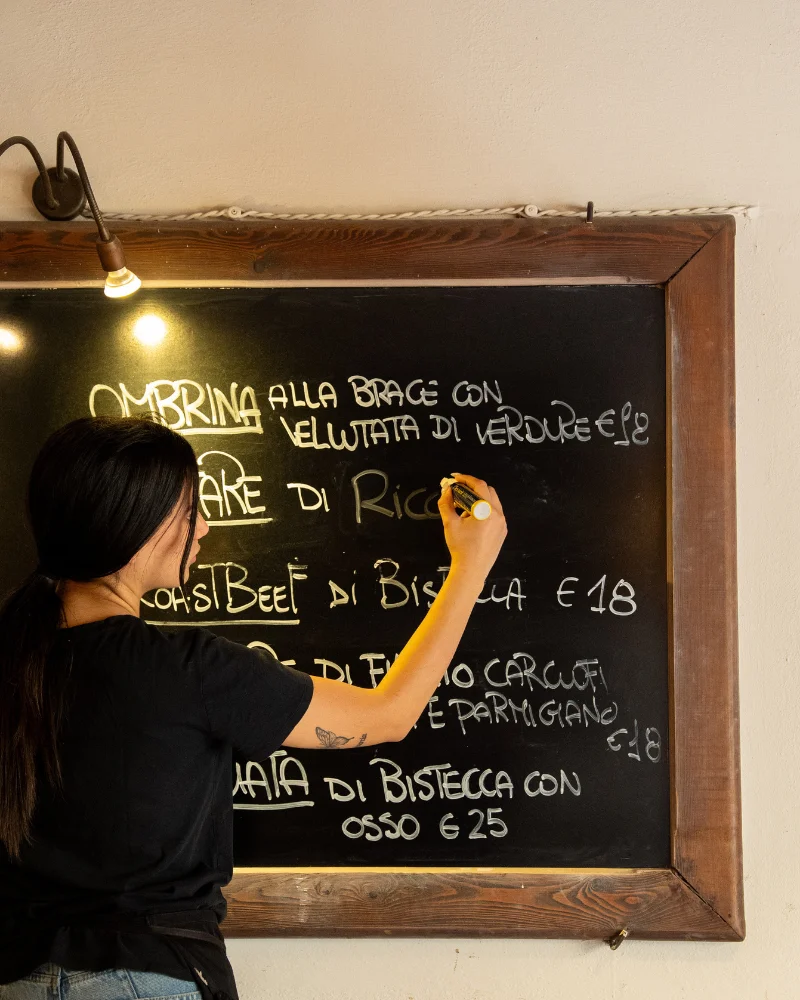 OMBRINA ALLA BRACE CON
VELLUTATA DI VERDURE €18
DI Ricc
ROASTBEEF Di BISTECCA €18
DI CARCIOFI
E PARMIGIANO
€18
DI BISTECCA CON
OSSO €25